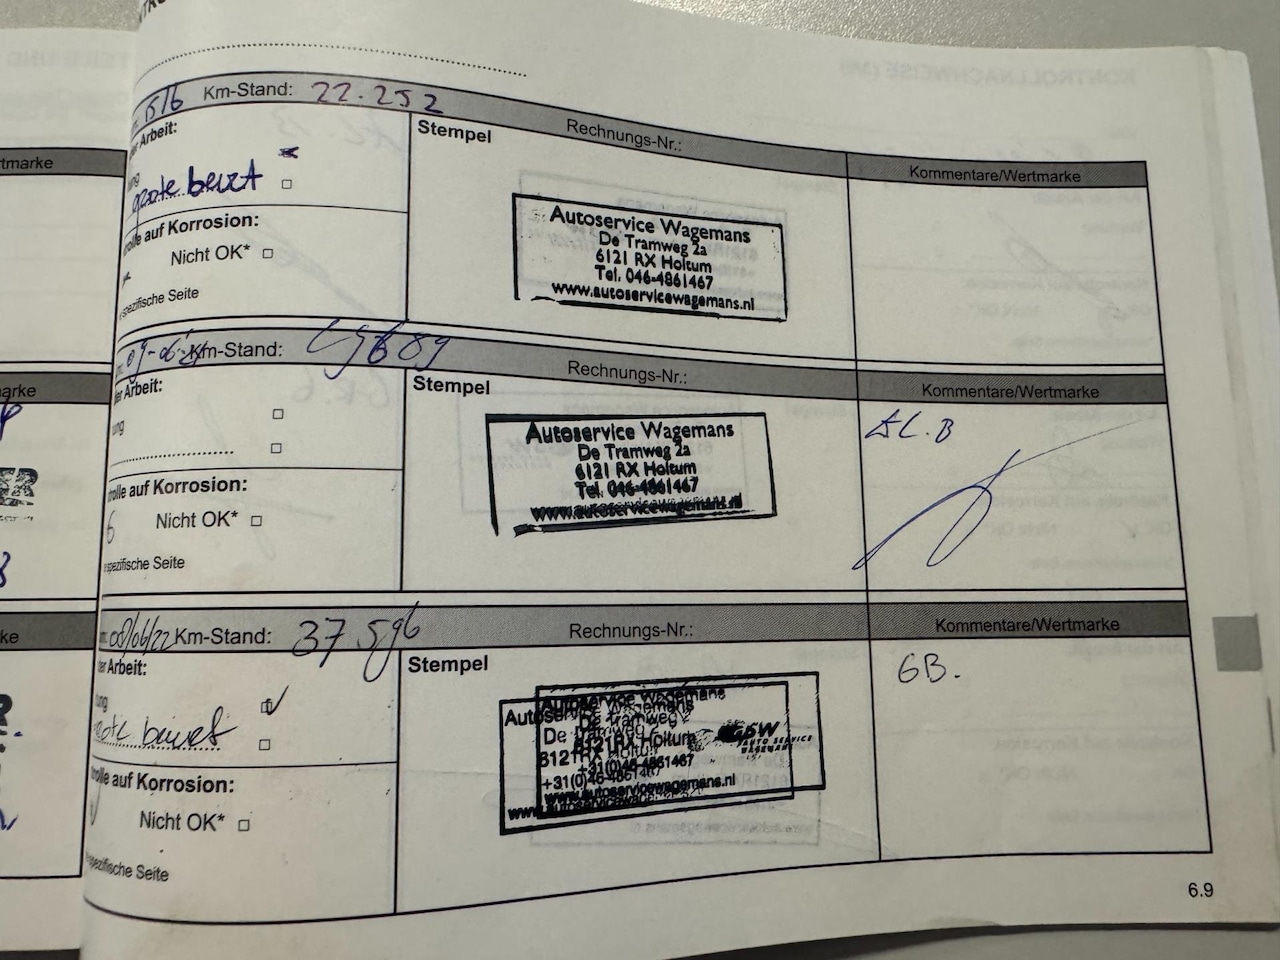 15/6 Km-Stand: 22.252
Arbeit:
Stempel
Rechnungs-Nr.:
Kommentare/Wertmarke
grote beurt
auf Korrosion:
Nicht OK*
spezifische Seite
Autoservice Wagemans
De Tramweg 2a
6121 RX Holtum
Tel. 046-4861467
www.autoservicewagemans.nl
Km-Stand:
Arbeit:
Stempel
Rechnungs-Nr.:
Kommentare/Wertmarke
auf Korrosion:
Nicht OK*
spezifische Seite
Autoservice Wagemans
De Tramweg 2a
6121 RX Holtum
Tel. 046-4861467
www.autoservicewagemans.nl
08/06/22 Km-Stand: 37.596
Arbeit:
Stempel
Rechnungs-Nr.:
Kommentare/Wertmarke
beurt
auf Korrosion:
Nicht OK*
spezifische Seite
GB.
Autoservice Wagemans
De Tramweg
6121RX Holtum
+31(0)46-4861467
www.autoservicewagemans.nl
AUTO SERVICE
WAGEMANS
6.9